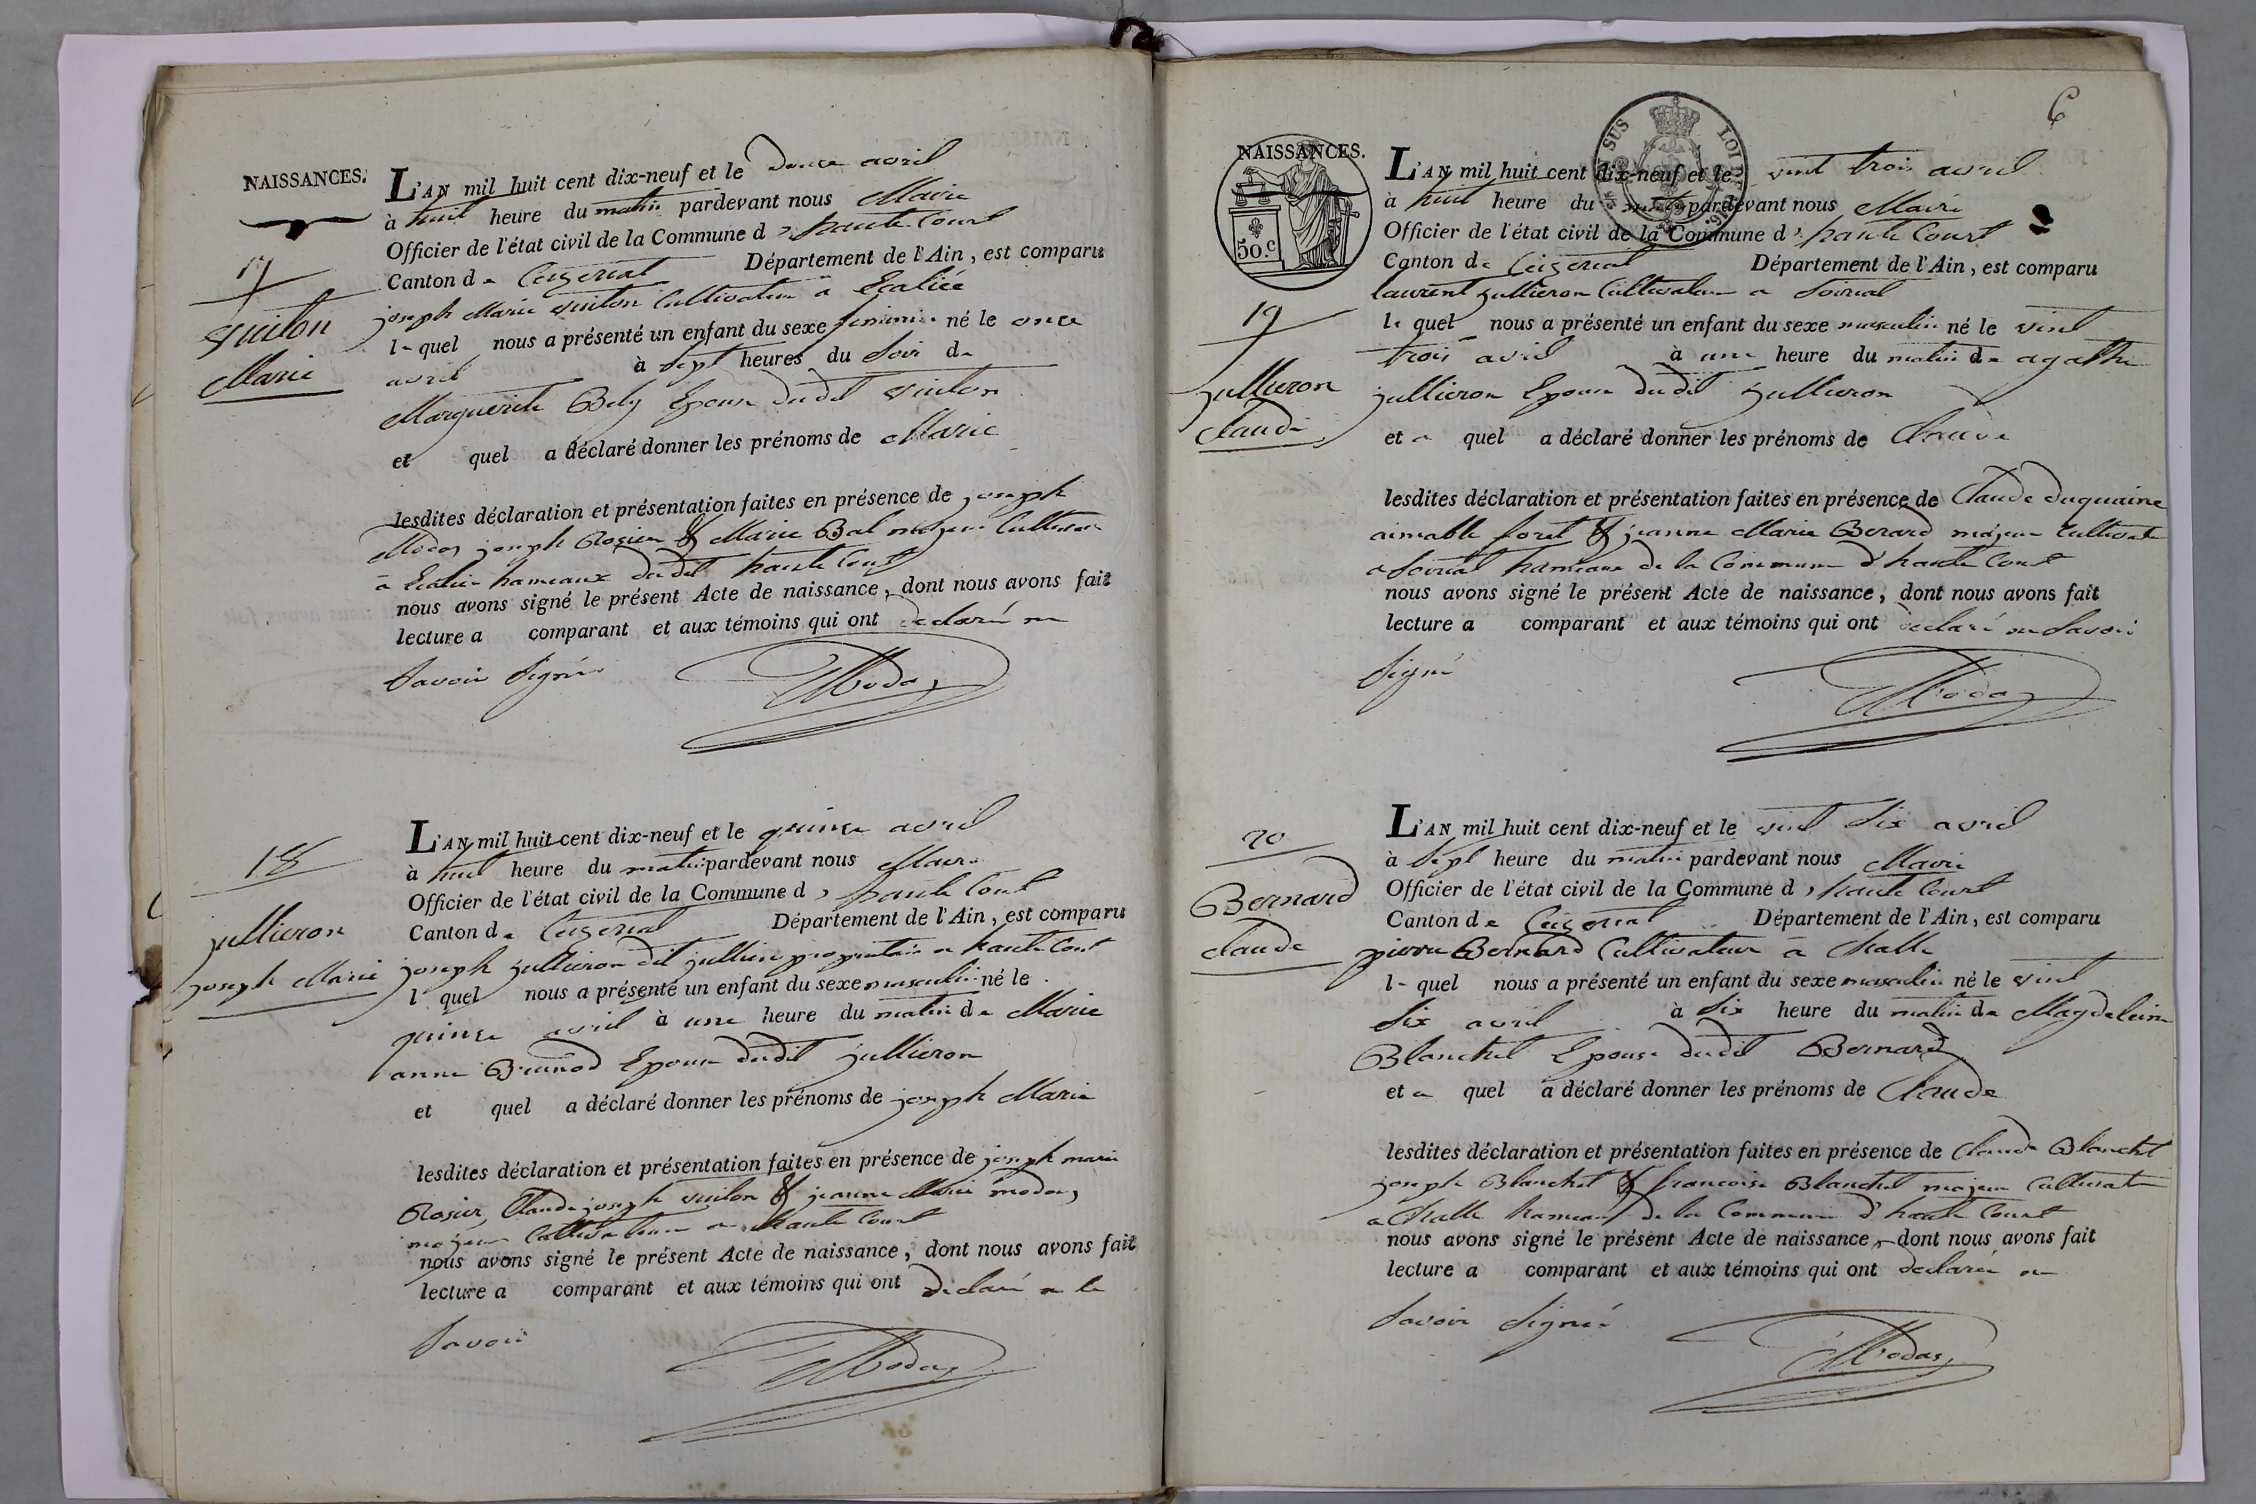 NAISSANCES.
17
Vuiton
Marie
L'AN mil huit cent dix-neuf et le douce avril
à huit heure du matin pardevant nous Maire
Officier de l'état civil de la Commune d' haute Court
Canton de Ceizeriat Département de l'Ain, est comparu
joseph Marie Vuiton Cultivateur a
le quel nous a présenté un enfant du sexe feminin né le once
avril à sept heures du Soir de
Marguerite Bely Epouse dudit Vuiton
et quel a déclaré donner les prénoms de Marie
lesdites déclaration et présentation faites en présence de joseph
Modas joseph Rosier & Marie Bal majeur Cultivateur
a hameaux dudit haute Court
nous avons signé le présent Acte de naissance, dont nous avons fait
lecture a comparant et aux témoins qui ont declaré ne
Savoir Signé
Modas
18
jullieron
joseph Marie
L'AN mil huit cent dix-neuf et le quinse avril
à huit heure du matin pardevant nous Maire
Officier de l'état civil de la Commune d' haute Court
Canton de Ceizeriat Département de l'Ain, est comparu
joseph jullieron dit propriétaire a haute Court
l quel nous a présenté un enfant du sexe masculin né le
quinse avril à une heure du matin de Marie
anne Brunod Epouse dudit jullieron
et quel a déclaré donner les prénoms de joseph Marie
lesdites déclaration et présentation faites en présence de joseph marie
Rosier, Claude joseph Vuiton & jeanne Marie modas
majeur Cultivateur a haute Court
nous avons signé le présent Acte de naissance, dont nous avons fait
lecture a comparant et aux témoins qui ont declaré ne le
Savoir
Modas
6
SUS LOI DE
50.c
NAISSANCES.
19
jullieron
Claude
L'AN mil huit cent dix-neuf et le vint trois avril
à huit heure du matin pardevant nous Maire
Officier de l'état civil de la Commune d' haute Court
Canton de Ceizeriat Département de l'Ain, est comparu
laurent jullieron Cultivateur a
le quel nous a présenté un enfant du sexe masculin né le vint
trois avril à une heure du matin de agathe
jullieron Epouse dudit jullieron
et a quel a déclaré donner les prénoms de Claude
lesdites déclaration et présentation faites en présence de Claude duquaine
aimable foret & jeanne Marie Berard majeur Cultivat
a hameaux de la Commune d'haute Court
nous avons signé le présent Acte de naissance, dont nous avons fait
lecture a comparant et aux témoins qui ont declaré ne Savoir
Signé
Modas
20
Bernard
Claude
L'AN mil huit cent dix-neuf et le vint Six avril
à Sept heure du matin pardevant nous Maire
Officier de l'état civil de la Commune d' haute Court
Canton de Ceizeriat Département de l'Ain, est comparu
pierre Bernard Cultivateur a Challe
le quel nous a présenté un enfant du sexe masculin né le vint
Six avril à Six heure du matin de Magdeleine
Blanchet Epouse dudit Bernard
et a quel a déclaré donner les prénoms de Claude
lesdites déclaration et présentation faites en présence de Claude Blanchet
joseph Blanchet & francoise Blanchet majeur Cultivat
a Challe hameau de la Commune d'haute Court
nous avons signé le présent Acte de naissance, dont nous avons fait
lecture a comparant et aux témoins qui ont declaré ne
Savoir Signé
Modas